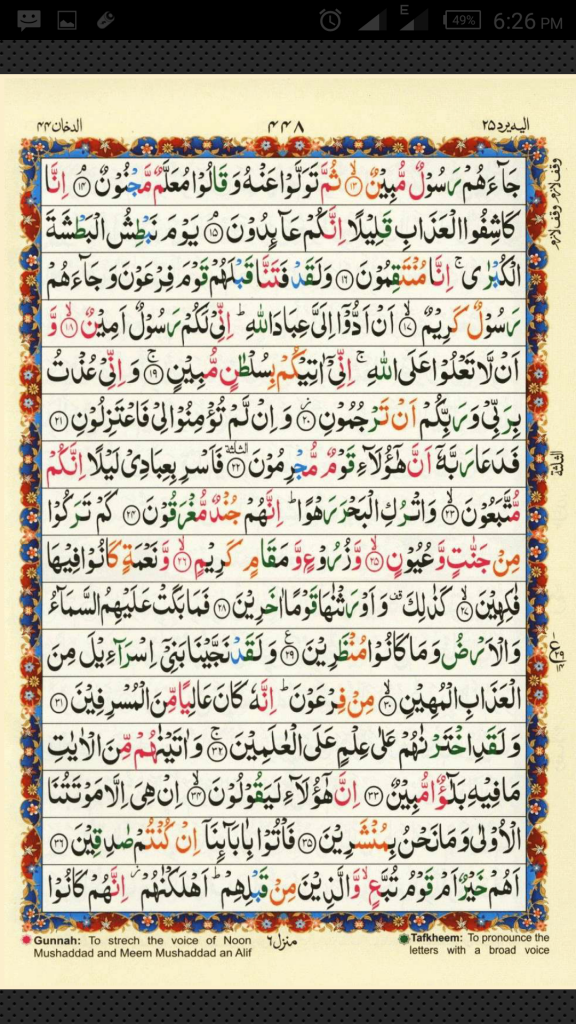 49%
6:26 PM
الدخان ٤٤
٤٤٨
الیه یرد ٢٥
جَآءَهُمْ رَسُوْلٌ مُّبِيْنٌ ﴿١٣﴾ ثُمَّ تَوَلَّوْا عَنْهُ وَقَالُوْا مُعَلَّمٌ مَّجْنُوْنٌ ﴿١٤﴾ اِنَّا
كَاشِفُوا الْعَذَابِ قَلِيْلًا اِنَّكُمْ عَآئِدُوْنَ ﴿١٥﴾ يَوْمَ نَبْطِشُ الْبَطْشَةَ
الْكُبْرٰى ۚ اِنَّا مُنْتَقِمُوْنَ ﴿١٦﴾ وَلَقَدْ فَتَنَّا قَبْلَهُمْ قَوْمَ فِرْعَوْنَ وَجَآءَهُمْ
رَسُوْلٌ كَرِيْمٌ ﴿١٧﴾ اَنْ اَدُّوْۤا اِلَيَّ عِبَادَ اللّٰهِ ؕ اِنِّيْ لَكُمْ رَسُوْلٌ اَمِيْنٌ ﴿١٨﴾ وَّ
اَنْ لَّا تَعْلُوْا عَلَى اللّٰهِ ۚ اِنِّيْۤ اٰتِيْكُمْ بِسُلْطٰنٍ مُّبِيْنٍ ﴿١٩﴾ وَاِنِّيْ عُذْتُ
بِرَبِّيْ وَرَبِّكُمْ اَنْ تَرْجُمُوْنِ ﴿٢٠﴾ وَاِنْ لَّمْ تُؤْمِنُوْا لِيْ فَاعْتَزِلُوْنِ ﴿٢١﴾
فَدَعَا رَبَّهٗۤ اَنَّ هٰۤؤُلَآءِ قَوْمٌ مُّجْرِمُوْنَ ﴿٢٢﴾ فَاَسْرِ بِعِبَادِيْ لَيْلًا اِنَّكُمْ
مُّتَّبَعُوْنَ ﴿٢٣﴾ وَاتْرُكِ الْبَحْرَ رَهْوًا ؕ اِنَّهُمْ جُنْدٌ مُّغْرَقُوْنَ ﴿٢٤﴾ كَمْ تَرَكُوْا
مِنْ جَنّٰتٍ وَّعُيُوْنٍ ﴿٢٥﴾ وَّزُرُوْعٍ وَّمَقَامٍ كَرِيْمٍ ﴿٢٦﴾ وَّنَعْمَةٍ كَانُوْا فِيْهَا
فٰكِهِيْنَ ﴿٢٧﴾ كَذٰلِكَ ۫ وَاَوْرَثْنٰهَا قَوْمًا اٰخَرِيْنَ ﴿٢٨﴾ فَمَا بَكَتْ عَلَيْهِمُ السَّمَآءُ
وَالْاَرْضُ وَمَا كَانُوْا مُنْظَرِيْنَ ﴿٢٩﴾ وَلَقَدْ نَجَّيْنَا بَنِيْۤ اِسْرَآءِيْلَ مِنَ
الْعَذَابِ الْمُهِيْنِ ﴿٣٠﴾ مِنْ فِرْعَوْنَ ؕ اِنَّهٗ كَانَ عَالِيًا مِّنَ الْمُسْرِفِيْنَ ﴿٣١﴾
وَلَقَدِ اخْتَرْنٰهُمْ عَلٰى عِلْمٍ عَلَى الْعٰلَمِيْنَ ﴿٣٢﴾ وَاٰتَيْنٰهُمْ مِّنَ الْاٰيٰتِ
مَا فِيْهِ بَلٰٓـؤٌا مُّبِيْنٌ ﴿٣٣﴾ اِنَّ هٰۤؤُلَآءِ لَيَقُوْلُوْنَ ﴿٣٤﴾ اِنْ هِيَ اِلَّا مَوْتَتُنَا
الْاُوْلٰى وَمَا نَحْنُ بِمُنْشَرِيْنَ ﴿٣٥﴾ فَاْتُوْا بِاٰبَآئِنَاۤ اِنْ كُنْتُمْ صٰدِقِيْنَ ﴿٣٦﴾
اَهُمْ خَيْرٌ اَمْ قَوْمُ تُبَّعٍ ۙ وَّالَّذِيْنَ مِنْ قَبْلِهِمْ ؕ اَهْلَكْنٰهُمْ ۫ اِنَّهُمْ كَانُوْا
Gunnah: To strech the voice of Noon
Mushaddad and Meem Mushaddad an Alif
منزل ٦
Tafkheem: To pronounce the
letters with a broad voice